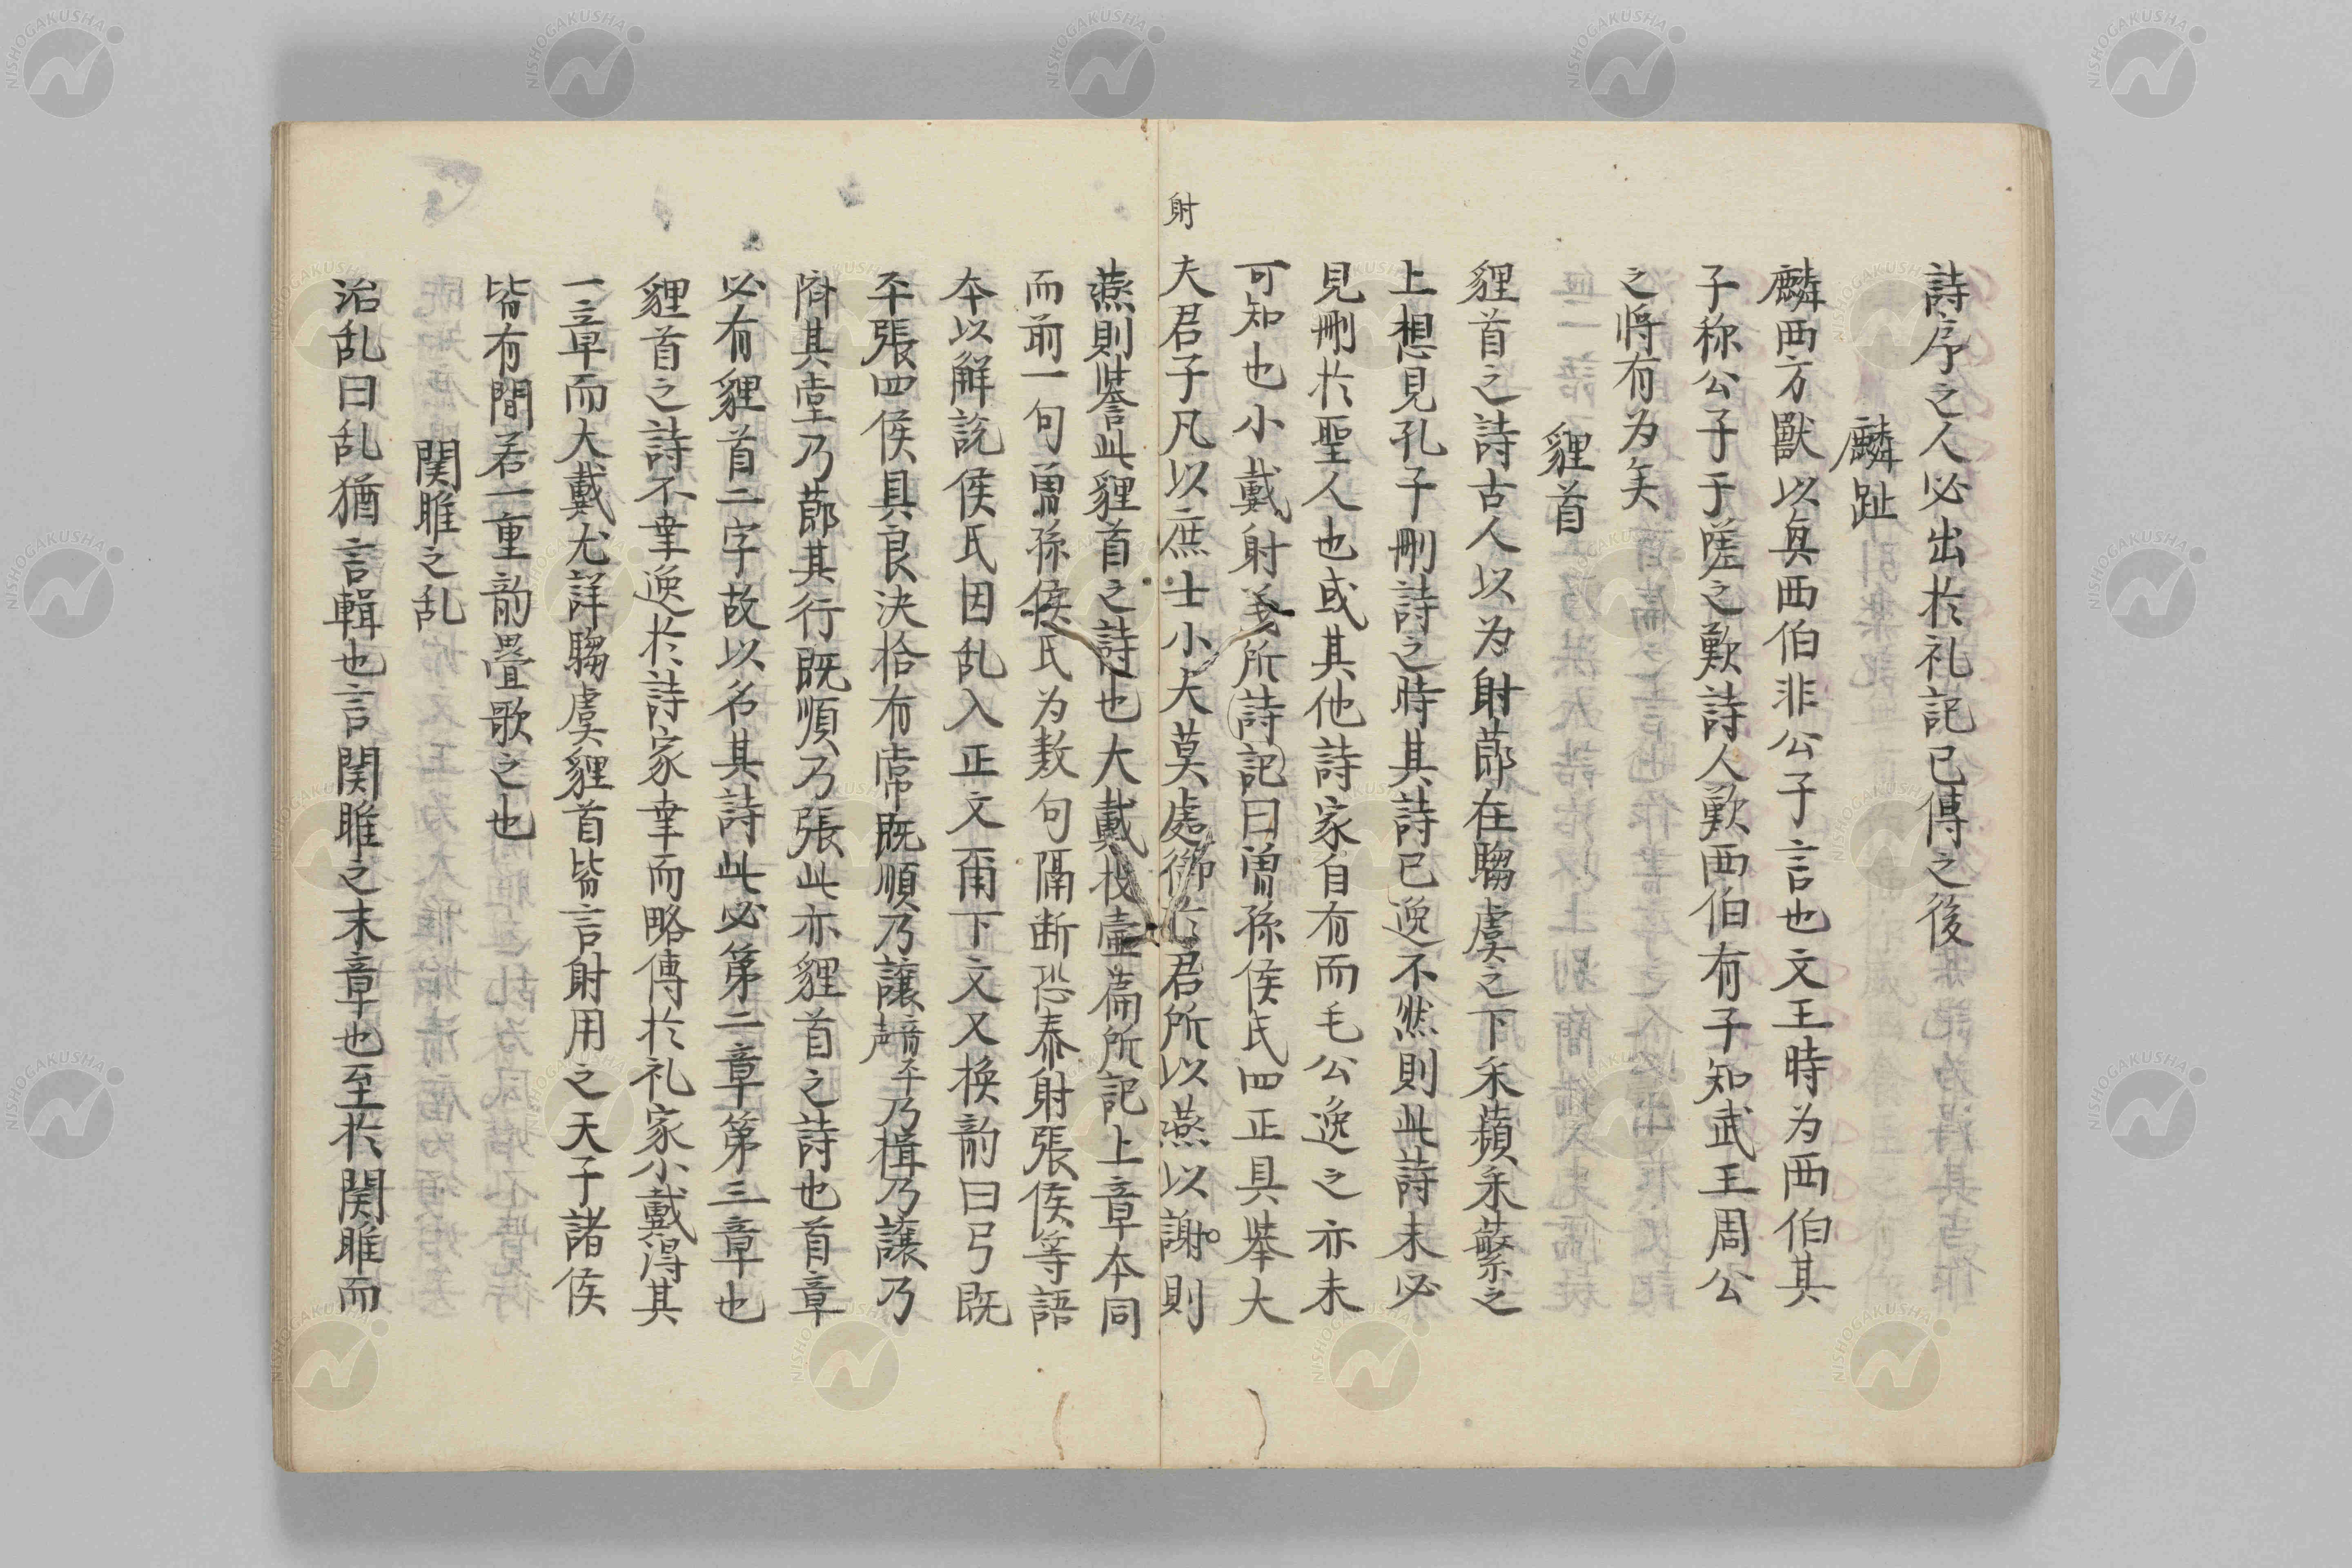 詩序之人必出於礼記已傳之後
麟趾
麟西方獸以真西伯非公子言也文王時为西伯其
子称公子于嗟之歎詩人歎西伯有子知武王周公
之将有为矣
貍首
貍首之詩古人以为射莭在騶虞之下采蘋采蘩之
上想見孔子刪詩之時其詩已逸不然則此詩未必
見刪於聖人也或其他詩家自有而毛公逸之亦未
可知也小戴射義所詩記曰曽孫侯氏四正具挙大
射
夫君子凡以庶士小大莫處御於君所以燕以謝則
燕則誉此貍首之詩也大戴投壷篇所記上章本同
而前一句曽孫侯氏为数句隔断恐泰射張侯等語
本以解說侯氏因乱入正文甫下文又换韵曰弓既
平張四侯具良決拾有常既順乃讓乃楫乃讓乃
隮其堂乃莭其行既順乃張此亦貍首之詩也首章
必有貍首二字故以名其詩此必第二章第三章也
貍首之詩不幸逸於詩家幸而略傳於礼家小戴得其
一章而大戴尤詳騶虞貍首皆言射用之天子諸侯
皆有間若一重韵疊歌之也
関雎之乱
治乱曰乱猶言輯也言関雎之末章也至於関雎而
NISHOGAKUSHA